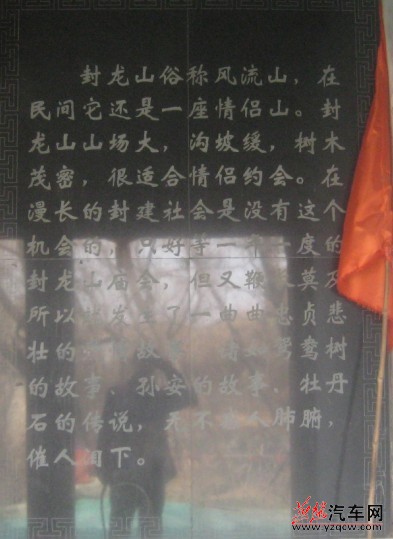 封龙山俗称风流山，在
民间它还是一座情侣山。封
龙山山场大，沟坡缓，树木
茂密，很适合情侣约会。在
漫长的封建社会是没有这个
机会的，只好等一年一度的
封龙山庙会，但又鞭长莫及
所以 发生了一曲曲忠贞悲
壮的 故事 鸳鸯树
的故事，孙安的故事，牡丹
石的传说，无不 人肺腑，
催人泪下。
汽车网
www.yzqcw.com